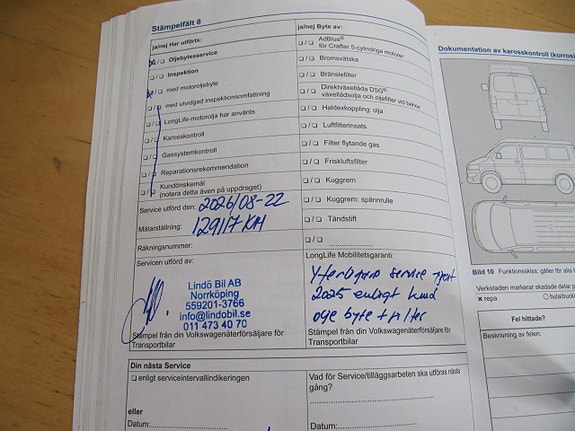 Stämpelfält 8
ja/nej Har utförts:
Oljebytesservice
Inspektion
med motoroljebyte
med utvidgad inspektionsomfattning
LongLife-motorolja har använts
Karosskontroll
Gassystemkontroll
Reparationsrekommendation
Kundönskemål
(notera detta även på uppdraget)
Service utförd den: 2026/08-22
Mätarställning: 129117 KM
Räkningsnummer:
Servicen utförd av:
Lindö Bil AB
Norrköping
559201-3766
info@lindobil.se
011 473 40 70
Stämpel från din Volkswagenåterförsäljare för
Transportbilar
ja/nej Byte av:
AdBlue®
för Crafter 5-cylindriga motorer
Bromsvätska
Bränslefilter
Direktväxellåda DSG®:
växellådsolja och oljefilter vid behov
Haldexkoppling, olja
Luftfilterinsats
Filter flytande gas
Friskluftsfilter
Kuggrem
Kuggrem: spännrulle
Tändstift
LongLife Mobilitetsgaranti:
service gjort
2025 enligt kund
olje byte + filter
Stämpel från din Volkswagenåterförsäljare för
Transportbilar
Din nästa Service
enligt serviceintervallindikeringen
eller
Datum:
Vad för Service/tilläggsarbeten ska utföras nästa
gång?
Datum:
Dokumentation av karosskontroll (korrosi
Bild 10 Funktionsskiss: gäller för alla
Verkstaden markerar skadade delar
x repa
Fel hittade?
Beskrivning av felen: